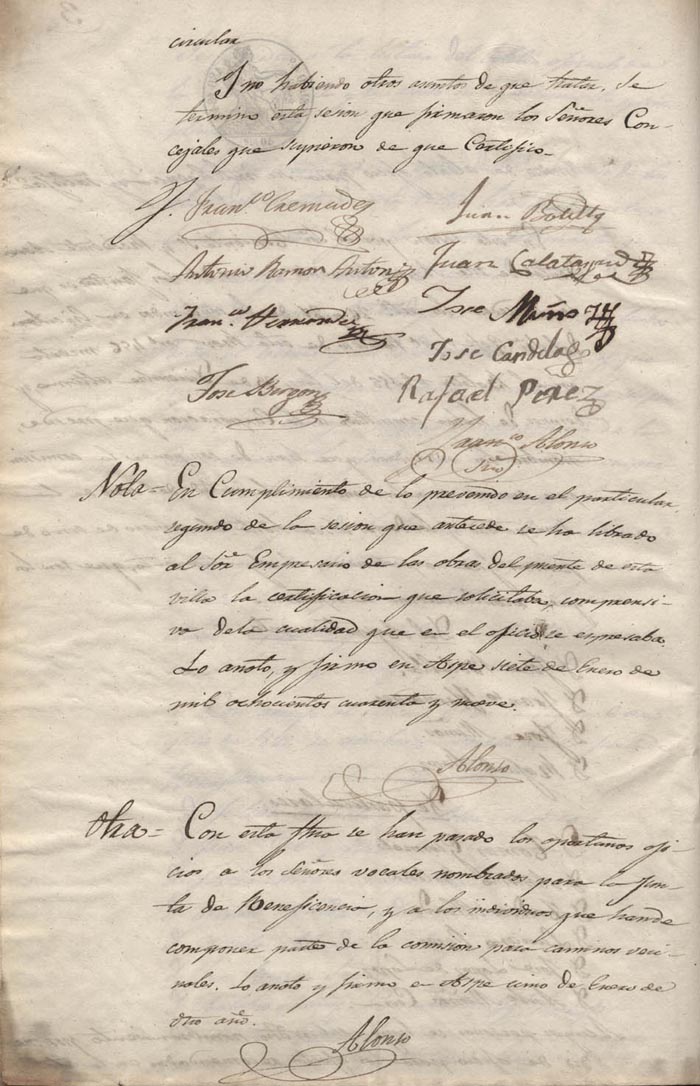 circular
Y no habiendo otros asuntos de que tratar, se
termino esta sesion que firmaron los Señores Con-
cejales que supieron de que Certifico.
F. Fran.co Cremades
Juan Botella
Antonio Ramon Anton
Juan Calatayud
Fran.co Hernandez
Jose Muños
Jose Candela
Jose Borgon
Rafael Perez
Fran.co Alonso
Srio
Nota = En Cumplimiento de lo prevenido en el particular
segundo de la sesion que antecede se ha librado
al Sor. Empresario de las obras del puente de esta
villa la certificacion que solicitaba, comprensi-
va dela cualidad que en el oficio se espresaba.
Lo anoto, y firmo en Aspe siete de Enero de
mil ochocientos cuarenta y nueve.
Alonso
Otra = Con esta fha se han pasado los oportunos ofi-
cios a los Señores vocales nombrados para la Jun-
ta de Beneficencia, y a los individuos que hande
componer parte de la comision para caminos veci-
nales. Lo anoto y firmo en Aspe cinco de Enero de
dho año.
Alonso